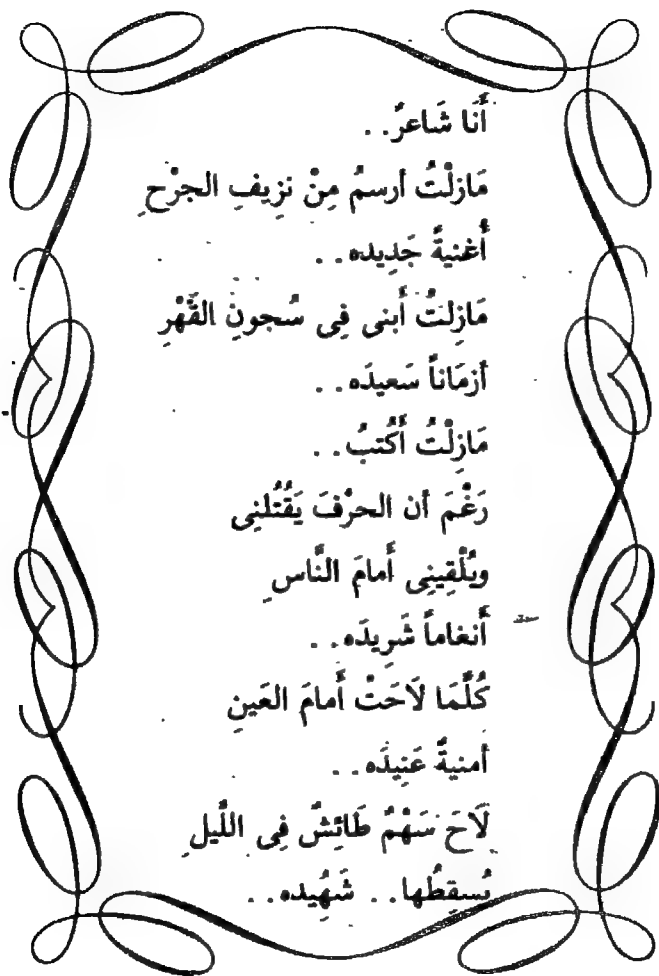 أَنَا شَاعرٌ . .
مَازلْتُ أرسمُ مِنْ نزِيفِ الجرْحِ
أُغنيةً جَدِيده . .
مَازِلتُ أَبنى فِى سُجونِ القَهْرِ
أزمَاناً سَعيدَه . .
مَازِلْتُ أَكُتبُ . .
رَغْمَ أن الحرْفَ يَقُتُلنِى
ويُلْقِينِى أَمامَ النَّاسِ
أَنغاماً شَرِيدَه . .
كُلَّمَا لاَحَتْ أَمامَ العَينِ
أمنيةٌ عَنِيدَه . .
لاَحَ سَهْمٌ طَائِشٌ فِى اللَّيلِ
يُسقِطُها . . شَهِيده . .